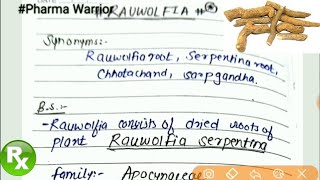 #Pharma Warrior
RAUWOLFIA #
Synonyms:-
Rauwolfia root, Serpentina root,
Chhotachand, sarpgandha.
B.S.:-
-Rauwolfia consists of dried roots of
plant Rauwolfia serpentina
family:- Apocynaceae
Rx